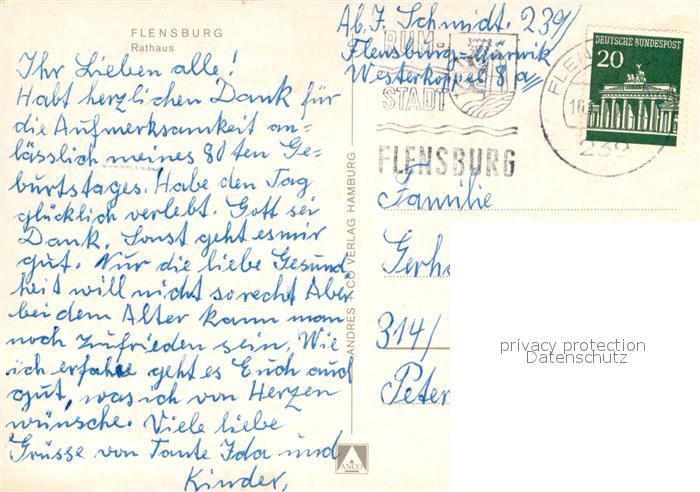 FLENSBURG
Rathaus
Ihr Lieben alle!
Habt herzlichen Dank für
die Aufmerksamkeit an=
lässlich meines 80ten Ge=
burtstages. Habe den Tag
glücklich verlebt. Gott sei
Dank. Sonst geht es mir
gut. Nur die liebe Gesund
heit will nicht so recht Aber
bei dem Alter kann man
noch zufrieden sein. Wie
ich erfahre geht es Euch auch
gut, was ich von Herzen
wünsche. Viele liebe
Grüsse von Tante Ida und
Kinder.
ANDRES ANCO VERLAG HAMBURG
ANCO
Ab. F. Schmidt. 239/
Flensburg-Mürwik
Westerkoppel 8a
RUM-
STADT
FLENSBURG
DEUTSCHE BUNDESPOST
20
FLEN
16.
239
Familie
Gerh
314/
Peter
privacy protection
Datenschutz